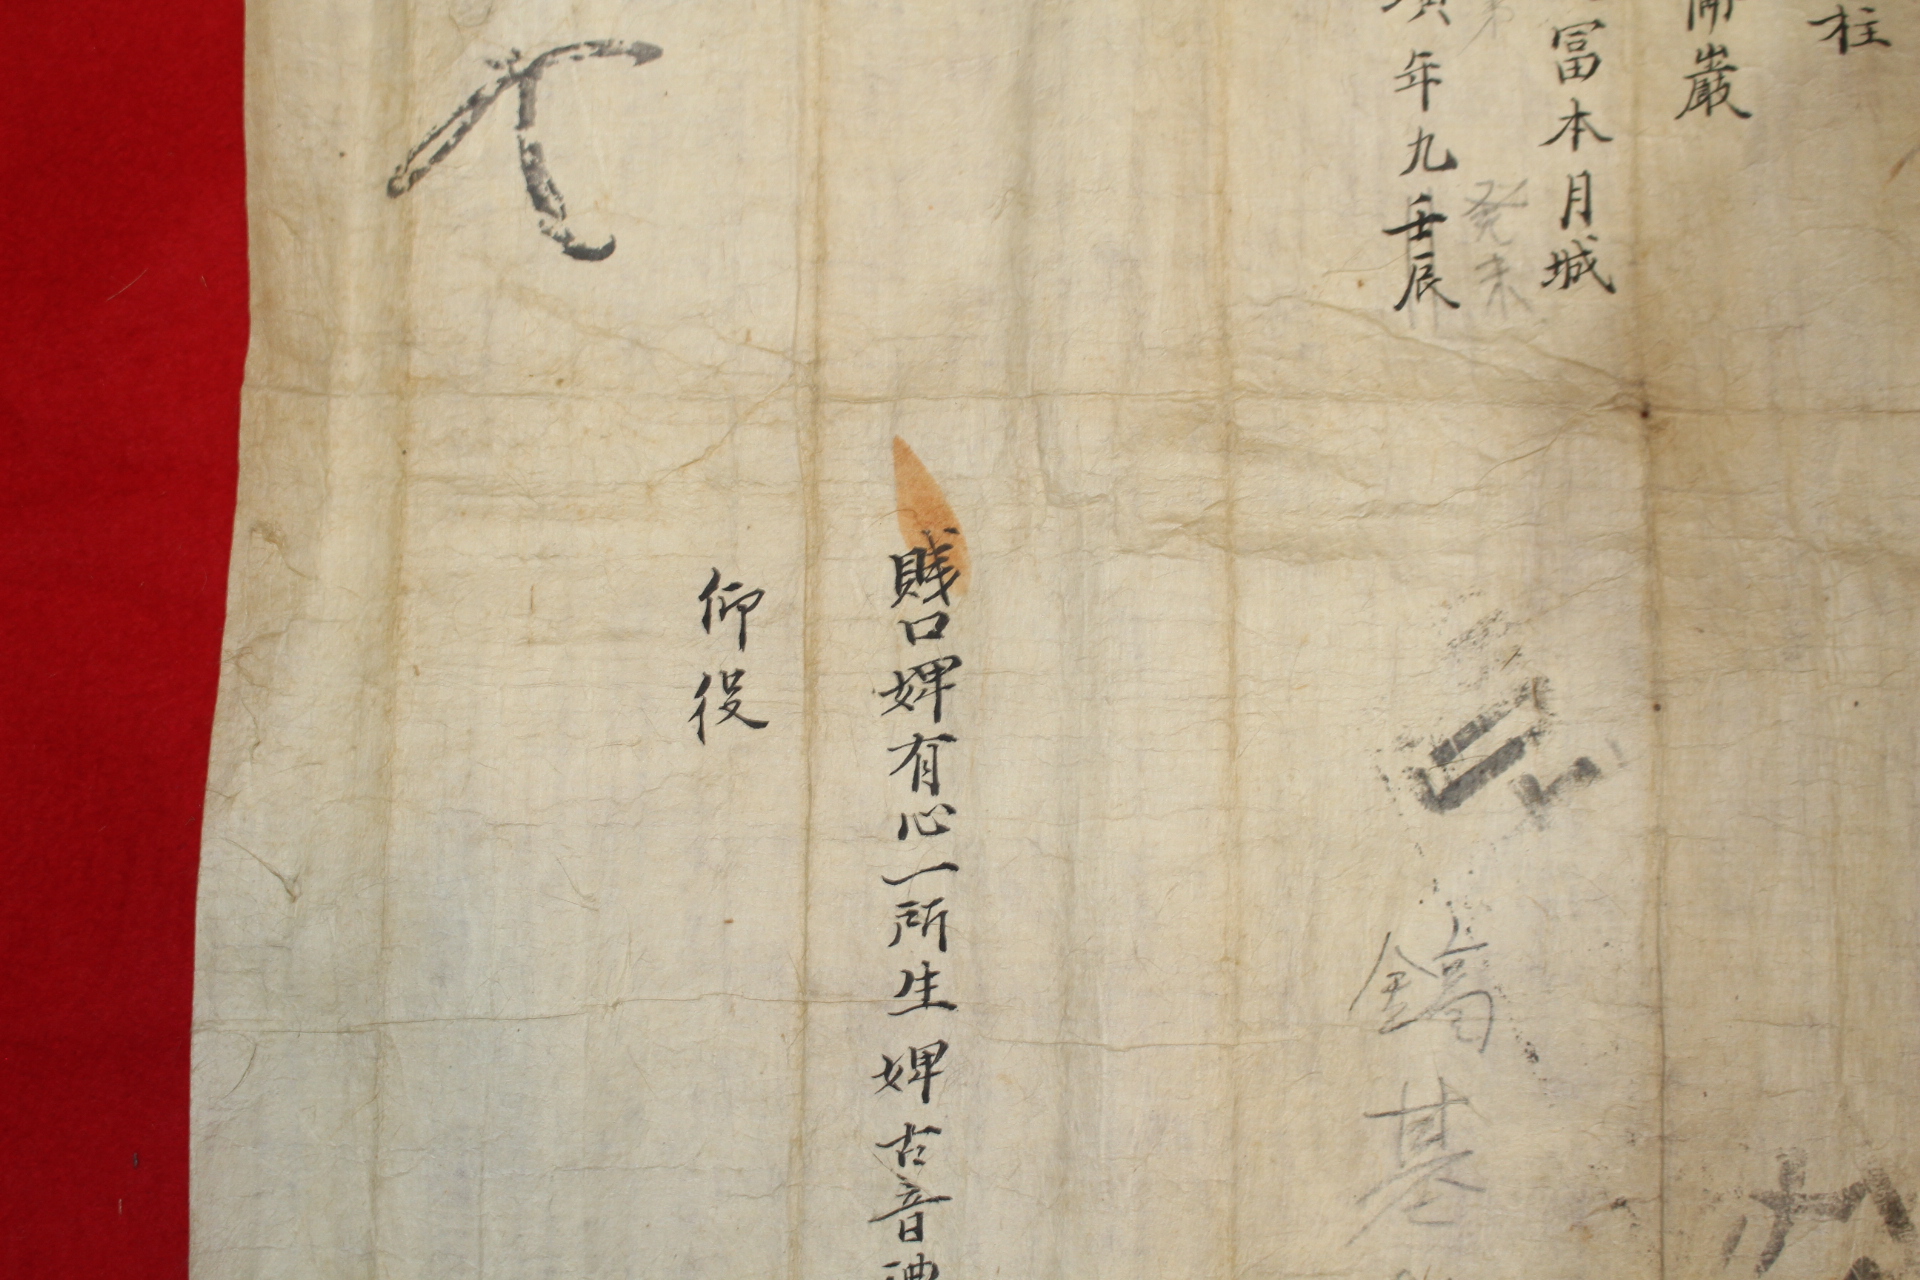 柱
巖
富本月城
年九壬辰
癸未
鎬基
賤口婢有心一所生婢古音
仰役